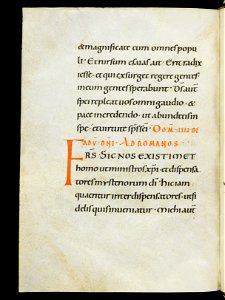 & magnificate eum omnes popu
li. Et rursum esaias ait. Erit radix
iesse. et qui exsurget regere gentes
in eum gentes sperabunt. Ds aut
spei repleat uos omni gaudio. &
pace in credendo. ut abundetis in
spe. et uirtute sps sci. DOM. IIII. DE
ADU. DNI. AD ROMANOS.
FRS. SIC NOS EXISTIMET
homo ut ministros xpi. et dispensa
tores mysteriorum di. Hic iam
quaeritur inter dispensatores. ut fi
delis quis inueniatur. Mihi aut